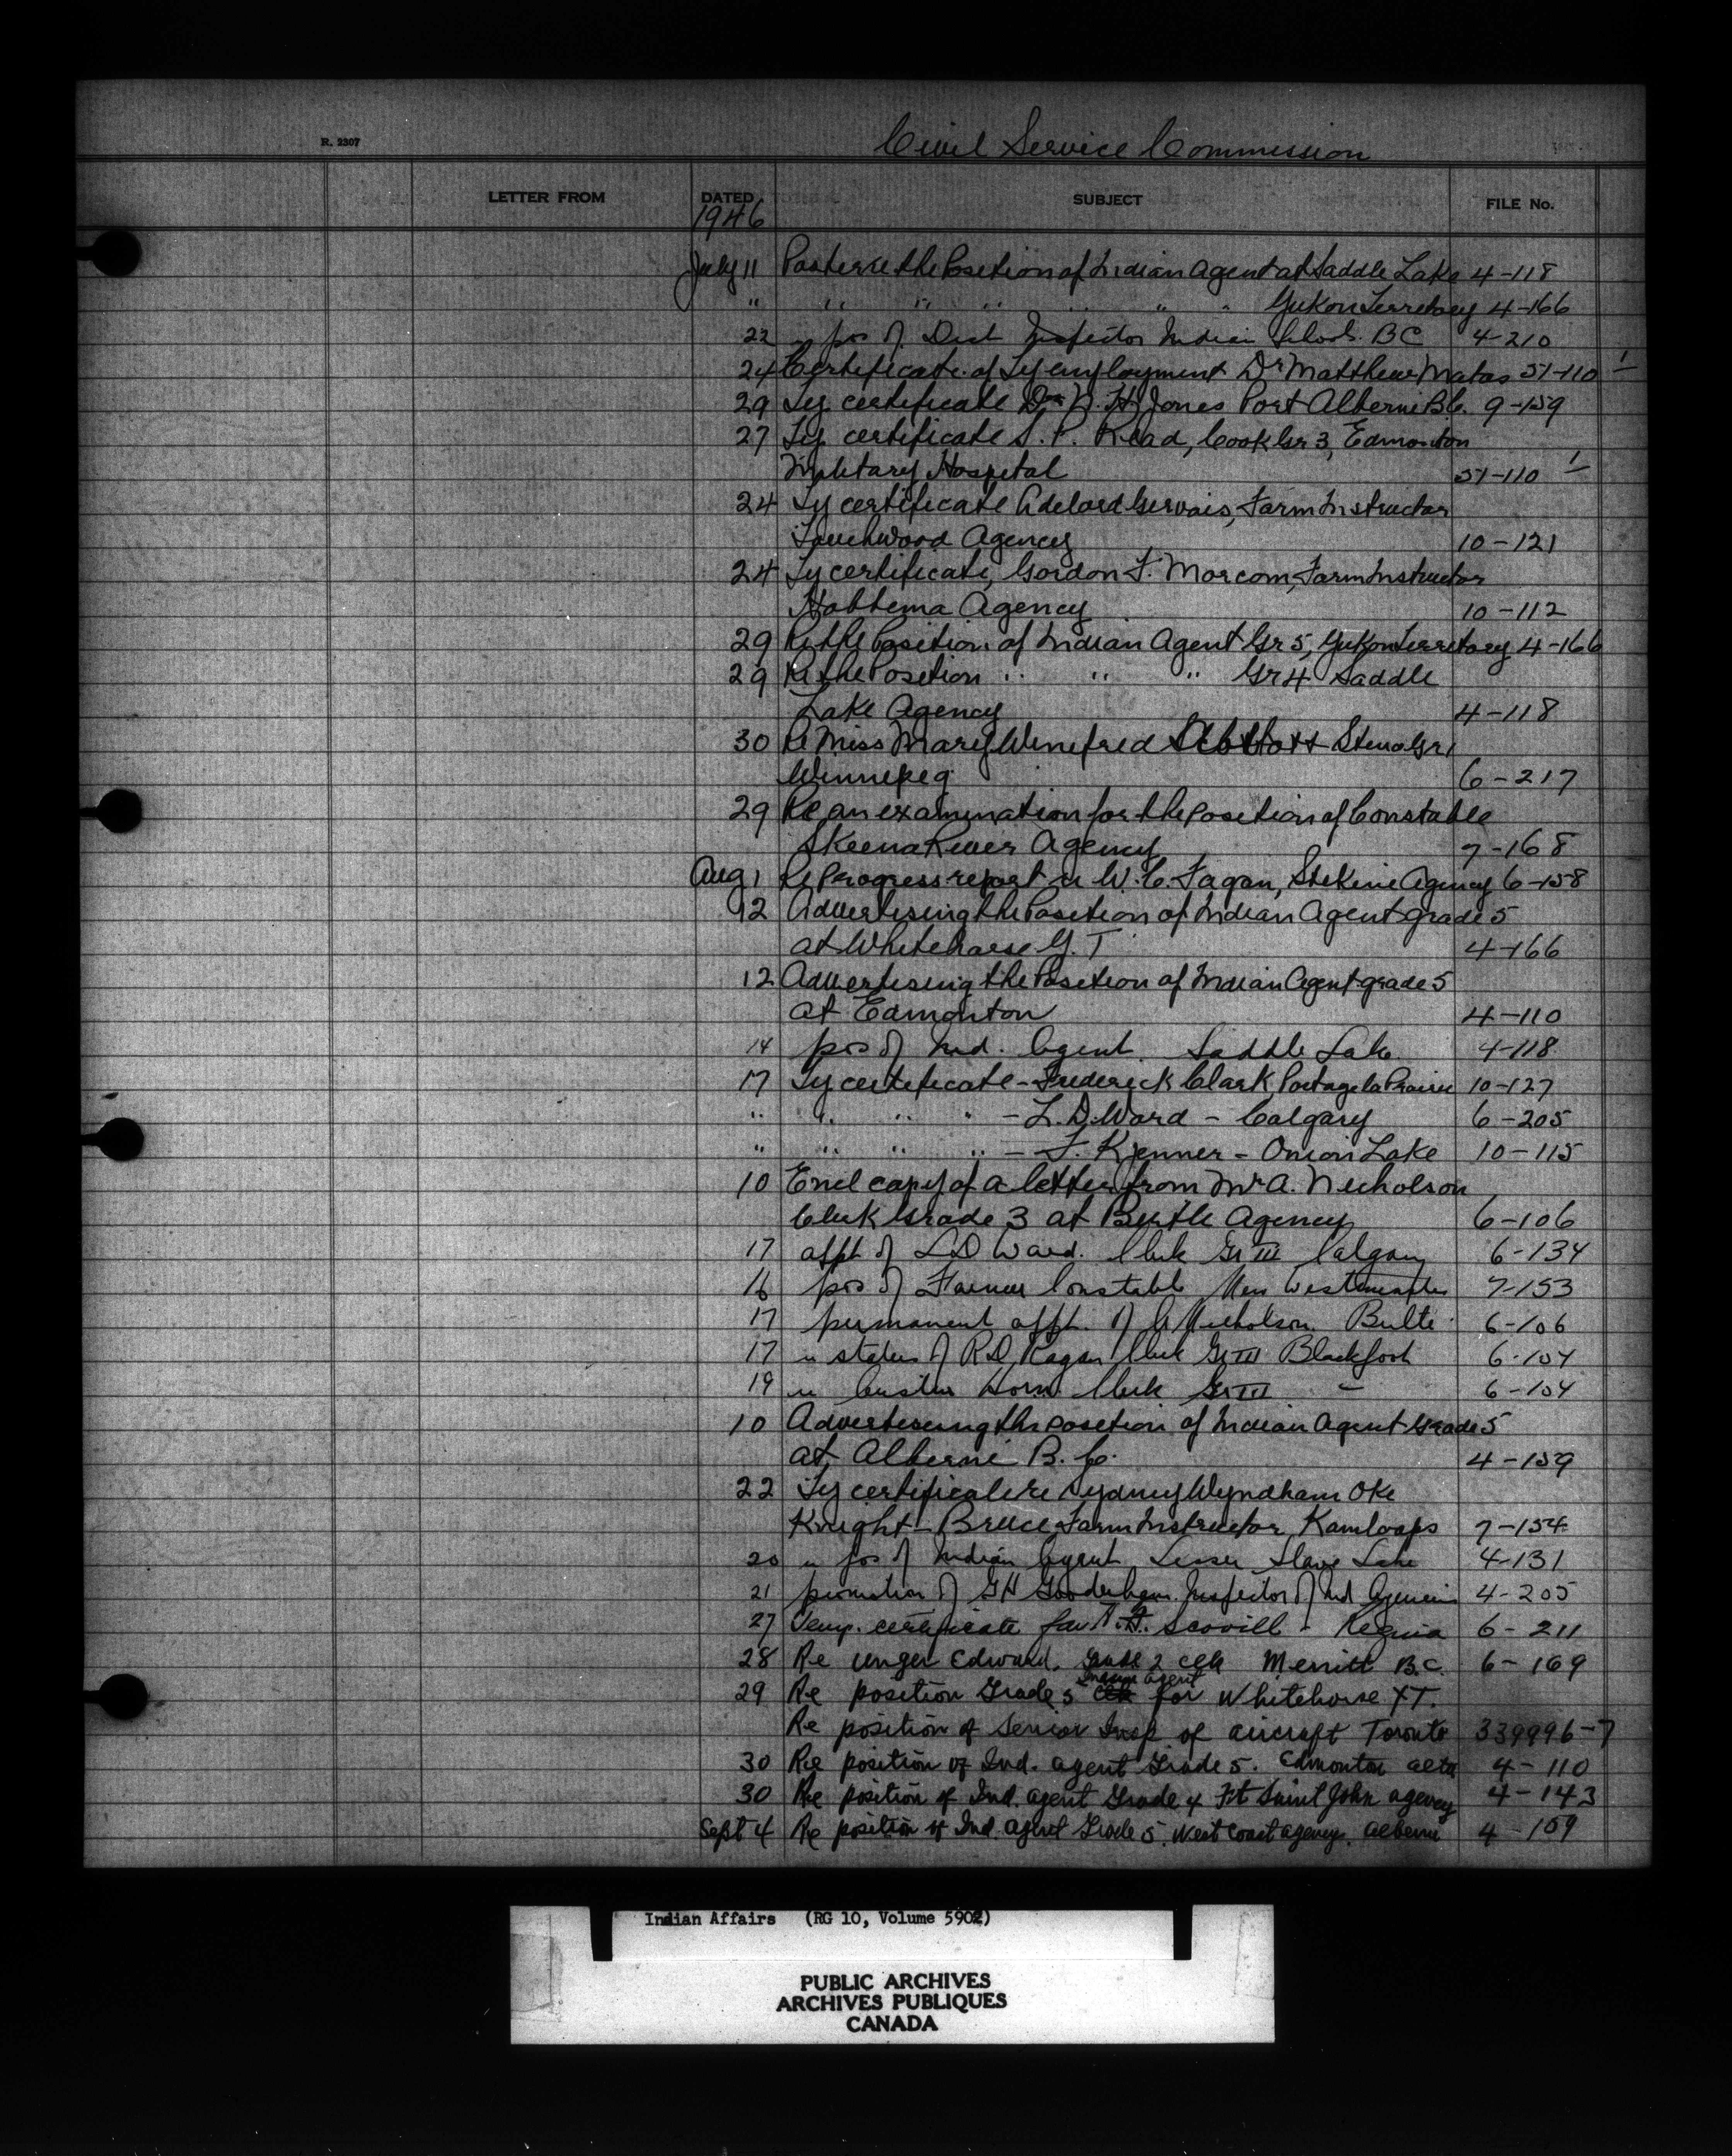 Civil Service Commission
R. 2307
LETTER FROM DATED SUBJECT FILE No.
1946
July 11 Poster re the Position of Indian Agent at Saddle Lake 4-118
" " " " " " Yukon Territory 4-166
22 re pos of Dist Inspector Indian Schools BC 4-210
24 Certificate of Ty employment Dr Matthew Matas 51-110 1
29 Ty certificate Dr N. H. Jones Port Alberni B.C. 9-159
27 Ty certificate S. P. Read, Cook Gr 3, Edmonton
Military Hospital 51-110 1
24 Ty certificate Adelard Gervais, Farm Instructor
Touchwood Agency 10-121
24 Ty certificate, Gordon F. Morcom, Farm Instructor
Hobbema Agency 10-112
29 Re the Position of Indian Agent Gr 5, Yukon Territory 4-166
29 Re the Position " " " Gr 4 Saddle
Lake Agency 4-118
30 Re Miss Mary Winefred Abbott Steno Gr 1
Winnipeg 6-217
29 Re an examination for the position of Constable
Skeena River Agency 7-168
Aug 1 Re Progress report re W. C. Fagan, Stekine Agency 6-158
12 Advertising the Position of Indian Agent grade 5
at Whitehorse Y. T 4-166
12 Advertising the Position of Indian Agent grade 5
at Edmonton 4-110
14 pos of Ind. Agent Saddle Lake 4-118
17 Ty certificate - Frederick Clark Portage la Prairie 10-127
" " " " - L. D. Ward - Calgary 6-205
" " " " - F. Kjenner - Onion Lake 10-115
10 Encl copy of a letter from Mr A. Nicholson
Clerk Grade 3 at Birtle Agency 6-106
17 appt of L D Ward. Clerk Gr III Calgary 6-134
16 pos of Farmer Constable New Westminster 7-153
17 permanent appt. of A Nicholson Birtle 6-106
17 re status of R D Ragan Clerk Gr III Blackfoot 6-104
19 re Horn Clerk Gr III " 6-104
10 Advertising the position of Indian Agent Grade 5
at Alberni B. C. 4-159
22 Ty certificate re Sydney Wyndham Oke
Knight-Bruce Farm Instructor Kamloops 7-154
20 re pos of Indian Agent Lesser Slave Lake 4-131
21 promotion of G H Gooderham Inspector of Ind Agencies 4-205
27 Temp. certificate for Scovill - Regina 6-211
28 Re Unger Edward, Grade 2 clk Merritt B.C. 6-169
29 Re position Grade 5 Indian Agent for Whitehorse YT.
Re position of Senior Insp of aircraft Toronto 339996-7
30 Re position of Ind. agent Grade 5. Edmonton alta 4-110
30 Re position of Ind. agent Grade 4 Ft Saint John agency 4-143
Sept 4 Re position of Ind. agent Grade 5. West Coast agency. Alberni 4-159
Indian Affairs (RG 10, Volume 5902)
PUBLIC ARCHIVES
ARCHIVES PUBLIQUES
CANADA